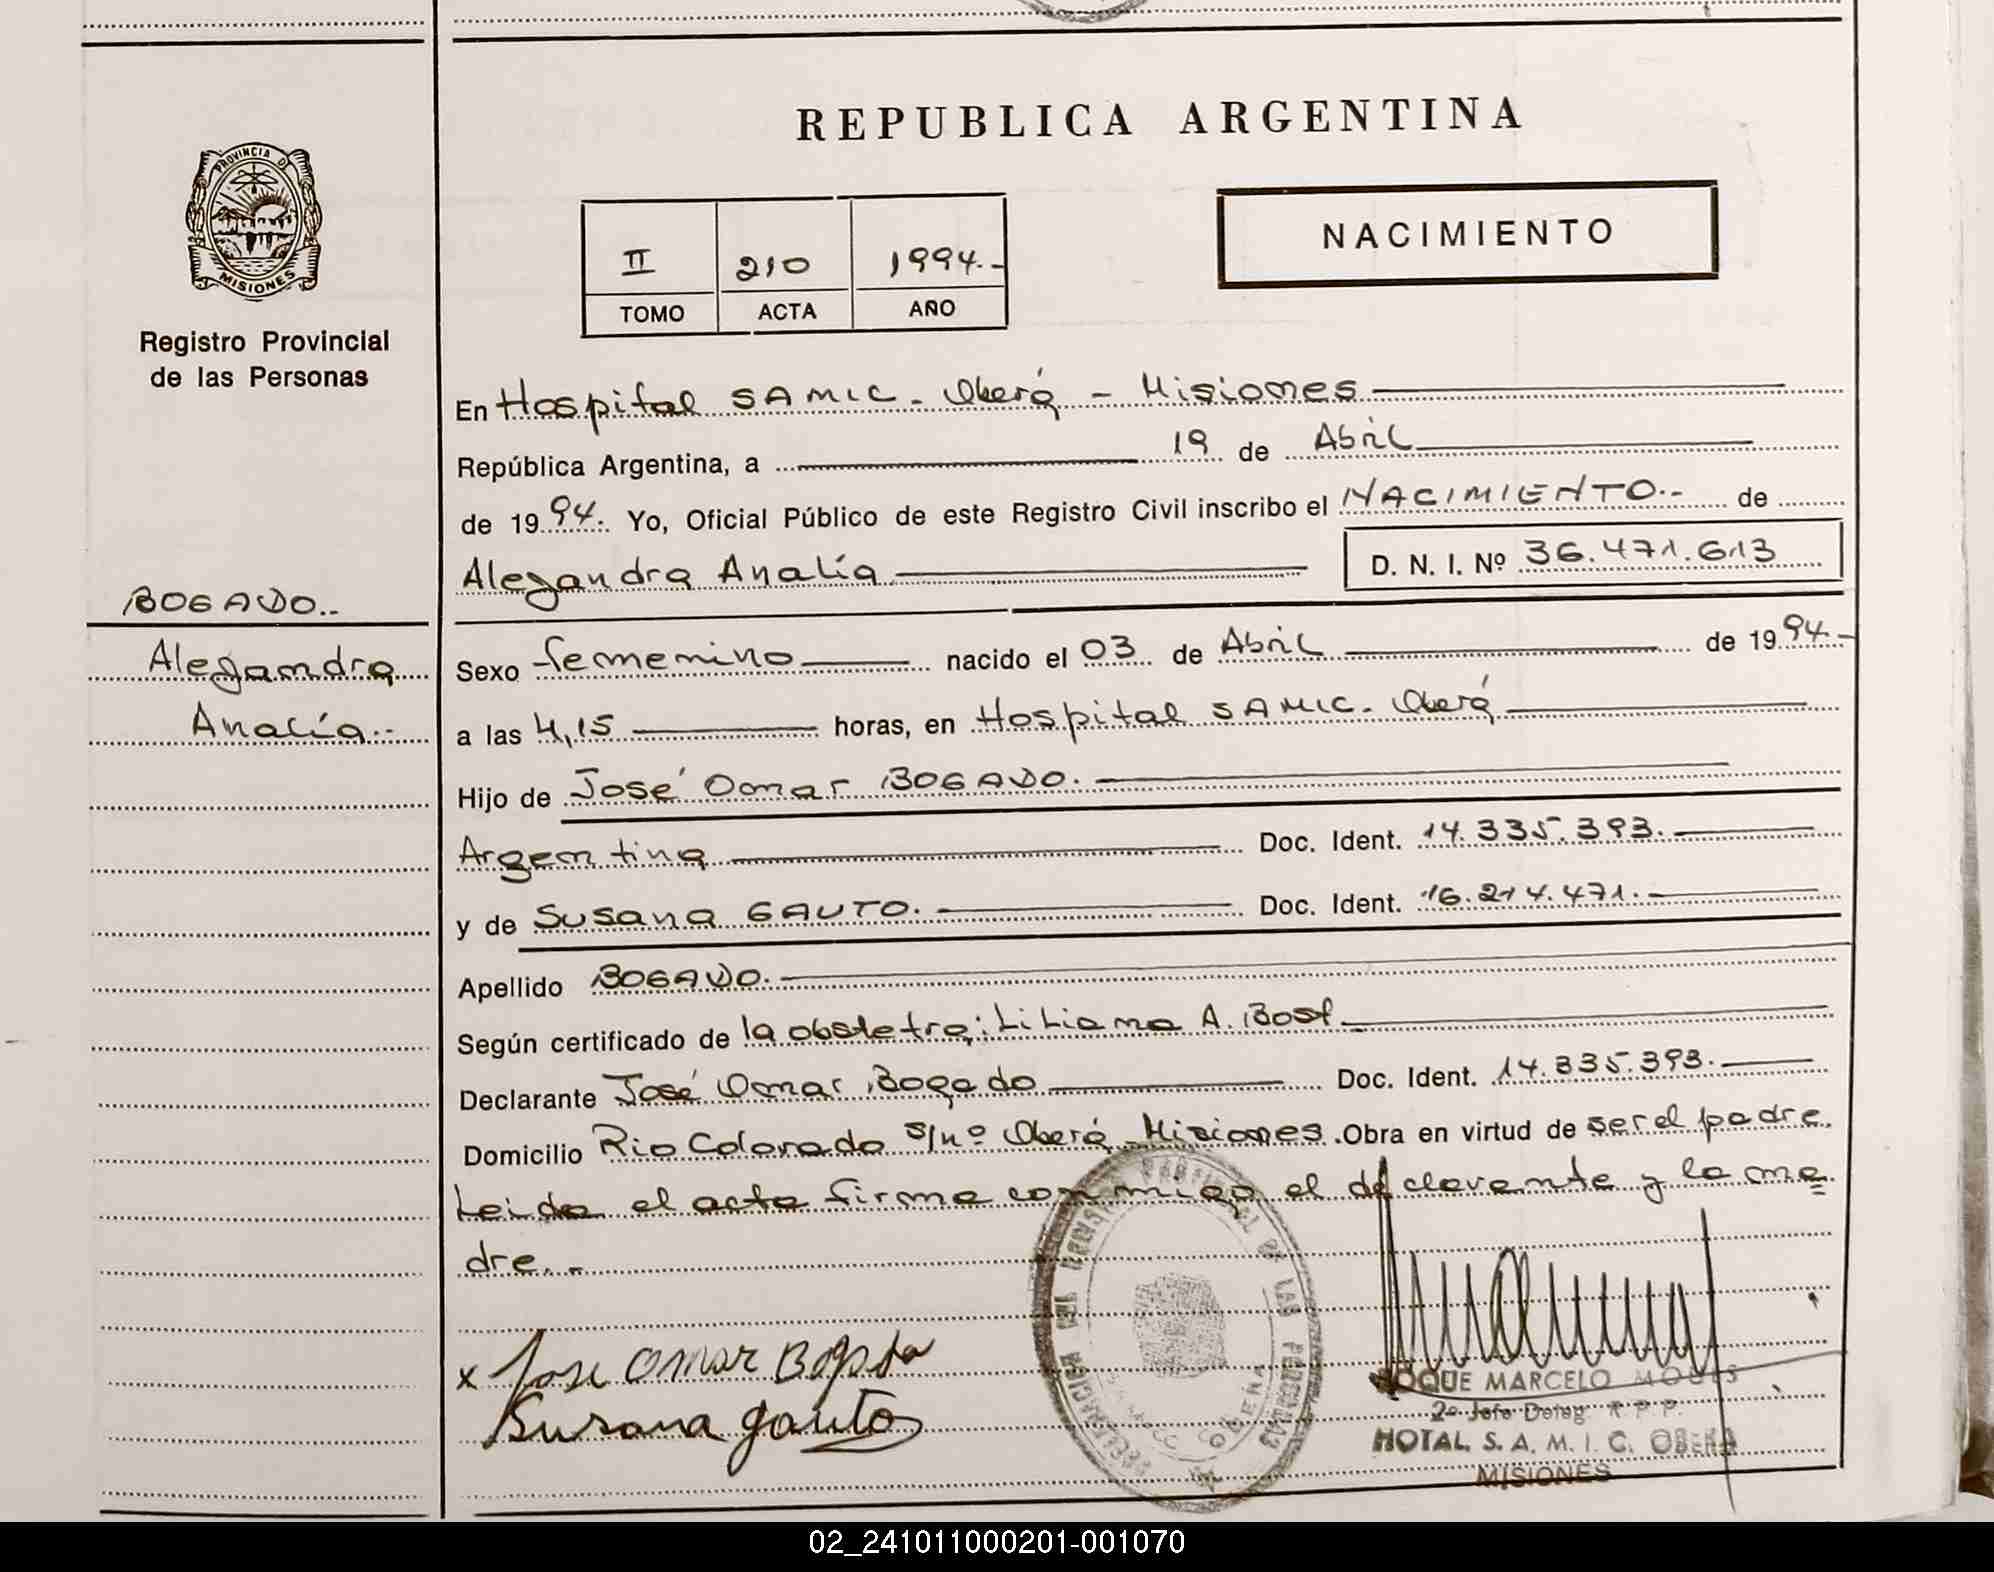 PROVINCIA D
MISIONES
Registro Provincial
de las Personas
BOGADO..
Alejandra
Analía.-
REPUBLICA ARGENTINA
II 210 1994.-
TOMO ACTA AÑO
NACIMIENTO
En Hospital SAMIC - Oberá - Misiones
República Argentina, a 19 de Abril
de 1994. Yo, Oficial Público de este Registro Civil inscribo el NACIMIENTO.- de
Alejandra Analía D. N. I. Nº 36.471.613
Sexo femenino nacido el 03 de Abril de 1994.-
a las 4,15 horas, en Hospital SAMIC. Oberá
Hijo de José Omar BOGADO.
Argentina Doc. Ident. 14.335.393.
y de Susana GAUTO. Doc. Ident. 16.214.471.
Apellido BOGADO.
Según certificado de la obstetra: Liliana A.
Declarante José Omar Bogado Doc. Ident. 14.335.393.
Domicilio Rio Colorado s/nº Oberá Misiones. Obra en virtud de ser el padre.
Leida el acta firma conmigo el declarante y la ma
dre..
x Jose Omar Bogado
Susana Gauto
ROQUE MARCELO
2º Jefe Deleg. R. P. P.
HOTAL. S. A. M. I. C. OBERA
MISIONES
02_241011000201-001070